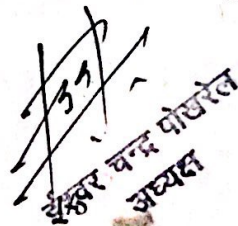 ईश्वर चन्द्र पोखरेल
अध्यक्ष